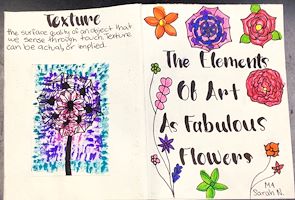 Texture
the surface quality of an object that
we sense through touch. Texture
can be actual or implied.
The Elements
Of Art
As Fabulous
Flowers
M4
Sarah N.